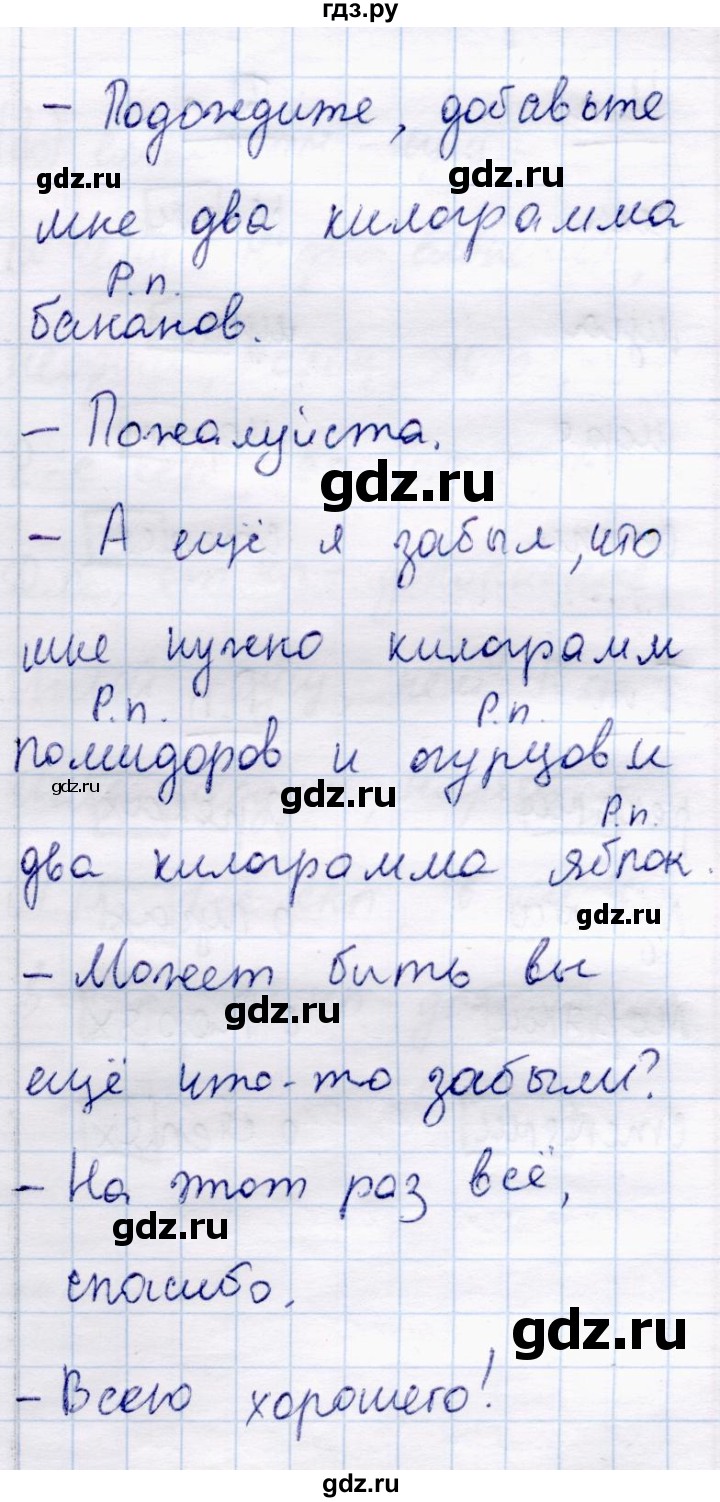 гдз.ру
- Подождите, добавьте
gdz.ru gdz.ru
мне два килограмма
Р.п.
бананов.
- Пожалуйста.
gdz.ru
- А ещё я забыл, что
мне нужно килограмм
Р.п. Р.п.
помидоров и огурцов и
gdz.ru gdz.ru
Р.п.
два килограмма яблок.
gdz.ru
- Может быть вы
gdz.ru
ещё что-то забыли?
- На этот раз всё,
gdz.ru
спасибо.
gdz.ru
- Всего хорошего!
gdz.ru